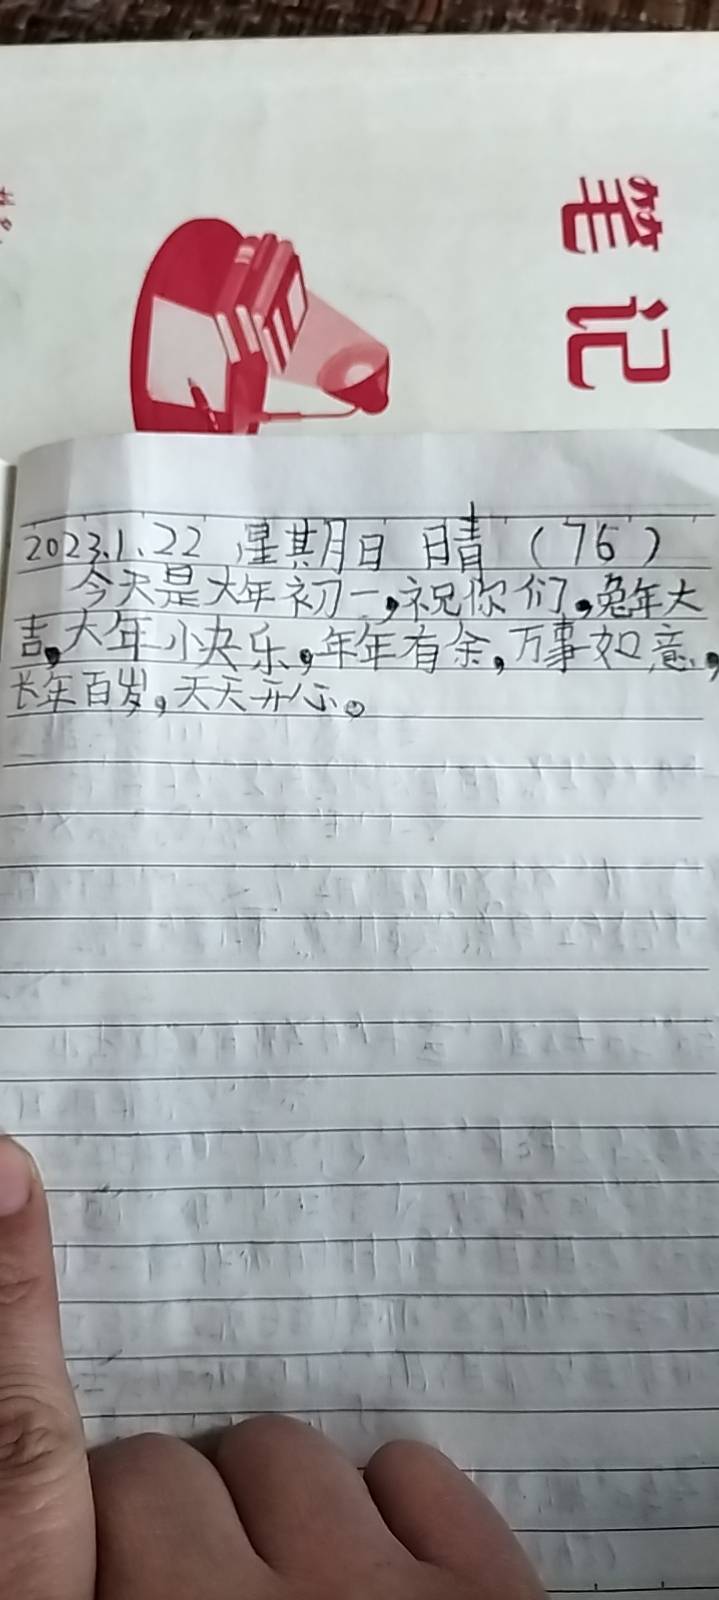 笔记
2023.1.22 星期日 晴（76）
今天是大年初一，祝你们，兔年大
吉，大年小快乐，年年有余，万事如意，
长年百岁，天天开心。